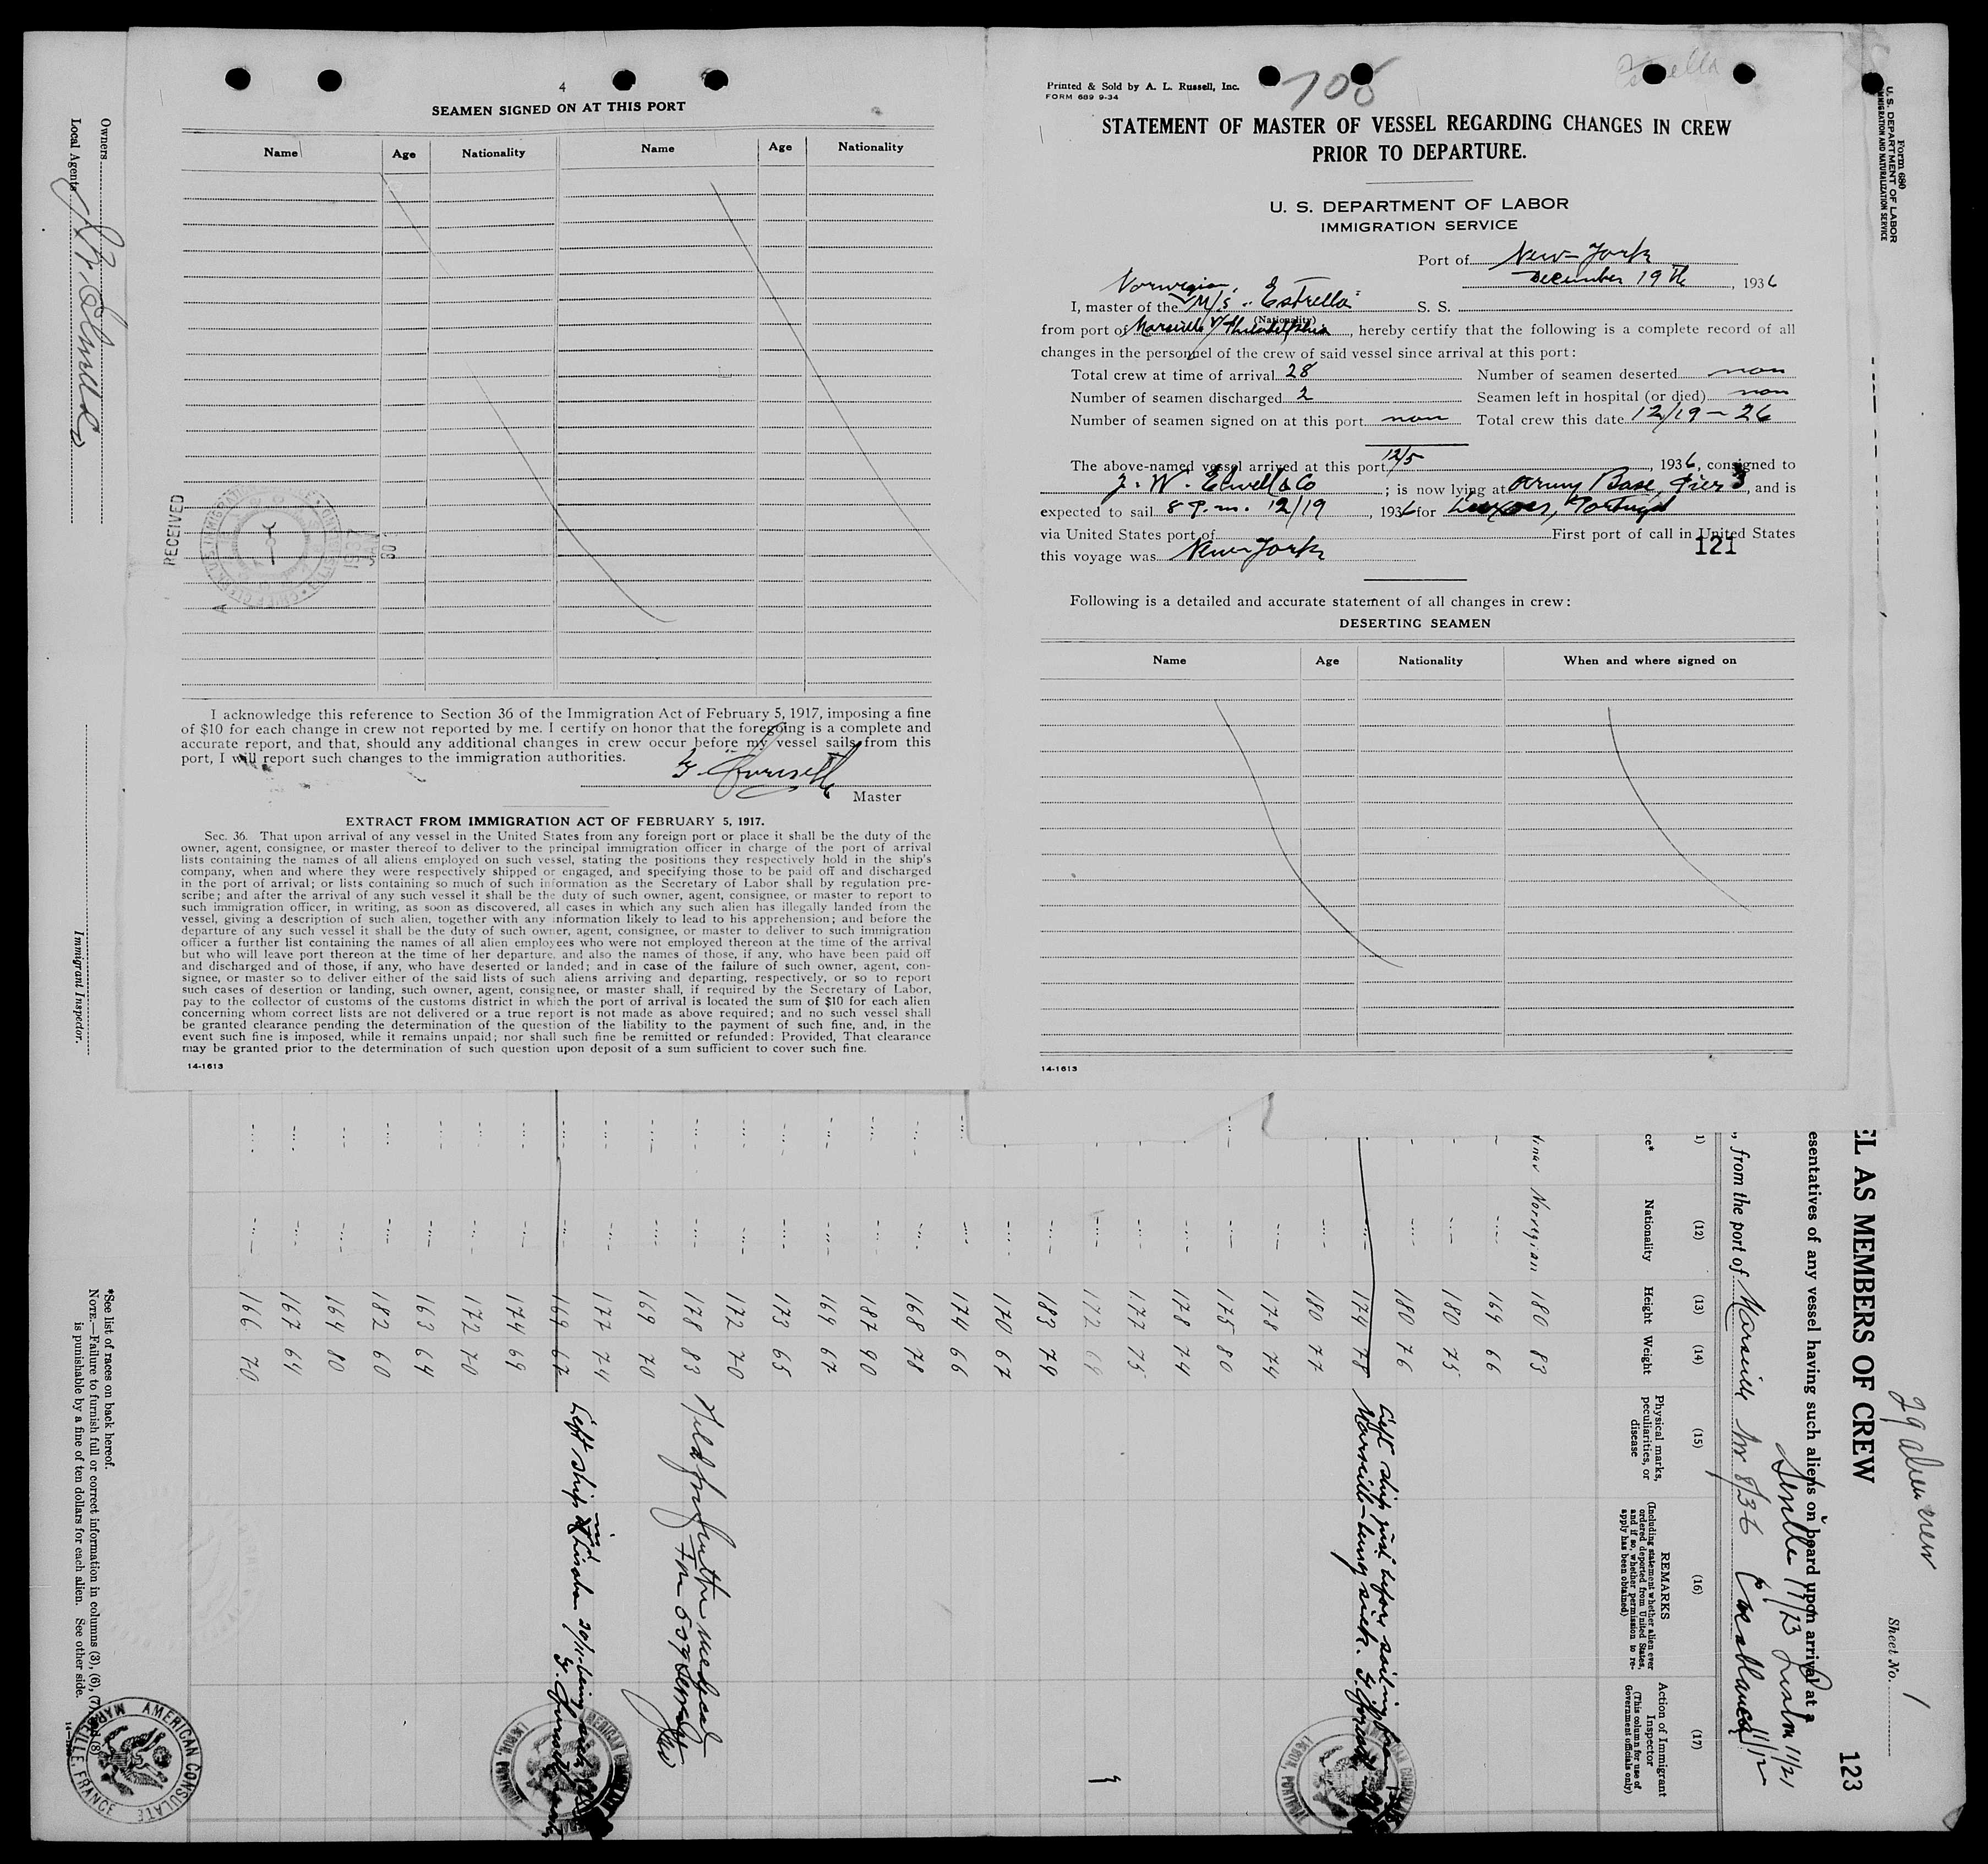 4
SEAMEN SIGNED ON AT THIS PORT
Name Age Nationality Name Age Nationality
RECEIVED
I acknowledge this reference to Section 36 of the Immigration Act of February 5, 1917, imposing a fine
of $10 for each change in crew not reported by me. I certify on honor that the foregoing is a complete and
accurate report, and that, should any additional changes in crew occur before my vessel sails from this
port, I will report such changes to the immigration authorities.
Master
EXTRACT FROM IMMIGRATION ACT OF FEBRUARY 5, 1917.
Sec. 36. That upon arrival of any vessel in the United States from any foreign port or place it shall be the duty of the
owner, agent, consignee, or master thereof to deliver to the principal immigration officer in charge of the port of arrival
lists containing the names of all aliens employed on such vessel, stating the positions they respectively hold in the ship's
company, when and where they were respectively shipped or engaged, and specifying those to be paid off and discharged
in the port of arrival; or lists containing so much of such information as the Secretary of Labor shall by regulation pre-
scribe; and after the arrival of any such vessel it shall be the duty of such owner, agent, consignee, or master to report to
such immigration officer, in writing, as soon as discovered, all cases in which any such alien has illegally landed from the
vessel, giving a description of such alien, together with any information likely to lead to his apprehension; and before the
departure of any such vessel it shall be the duty of such owner, agent, consignee, or master to deliver to such immigration
officer a further list containing the names of all alien employees who were not employed thereon at the time of the arrival
but who will leave port thereon at the time of her departure, and also the names of those, if any, who have been paid off
and discharged and of those, if any, who have deserted or landed; and in case of the failure of such owner, agent, con-
signee, or master so to deliver either of the said lists of such aliens arriving and departing, respectively, or so to report
such cases of desertion or landing, such owner, agent, consignee, or master shall, if required by the Secretary of Labor,
pay to the collector of customs of the customs district in which the port of arrival is located the sum of $10 for each alien
concerning whom correct lists are not delivered or a true report is not made as above required; and no such vessel shall
be granted clearance pending the determination of the question of the liability to the payment of such fine, and, in the
event such fine is imposed, while it remains unpaid; nor shall such fine be remitted or refunded: Provided, That clearance
may be granted prior to the determination of such question upon deposit of a sum sufficient to cover such fine.
14-1613
Printed & Sold by A. L. Russell, Inc.
FORM 689 9-34
708
Estrella
STATEMENT OF MASTER OF VESSEL REGARDING CHANGES IN CREW
PRIOR TO DEPARTURE.
U. S. DEPARTMENT OF LABOR
IMMIGRATION SERVICE
Port of New-York
December 19th, 1936
Norwegian
I, master of the M/S "Estrella" S. S.
(Nationality)
from port of Marseille v/ Philadelphia, hereby certify that the following is a complete record of all
changes in the personnel of the crew of said vessel since arrival at this port:
Total crew at time of arrival 28 Number of seamen deserted non
Number of seamen discharged 2 Seamen left in hospital (or died) non
Number of seamen signed on at this port non Total crew this date 12/19 - 26
The above-named vessel arrived at this port 12/5, 1936, consigned to
J. W. Elwell & Co; is now lying at Army Base, Pier 3, and is
expected to sail 8 P.m. 12/19, 1936 for Leixoes, Portugal
via United States port of First port of call in United States
this voyage was New York
121
Following is a detailed and accurate statement of all changes in crew:
DESERTING SEAMEN
Name Age Nationality When and where signed on
14-1613
Form 680
U. S. DEPARTMENT OF LABOR
IMMIGRATION AND NATURALIZATION SERVICE
29 alien crew
Sheet No. 1
123
EL AS MEMBERS OF CREW
esentatives of any vessel having such aliens on board upon arrival at a
Seville 11/13 Lisbon 11/21
, from the port of Marseille Nov 8/36 Casablanca 11/12
1) (12) (13) (14) (15) (16) (17)
ce* Nationality Height Weight
Physical marks, peculiarities, or disease
REMARKS
(Including statement whether alien ever ordered deported from United States, and if so, whether permission to re-apply has been obtained)
Action of Immigrant Inspector
(This column for use of Government officials only)
Norvegian 180 83
169 66
180 75
180 76
174 78 Left ship just before sailing from
Marseille - being sick.
180 77
178 74
175 80
178 74
177 75
172 69
183 79
170 67
174 66
168 78
187 90
169 67
173 65
172 70
178 83 Held for further medical
169 70
177 74
169 67 Left ship in Lisbon 20/11 being sick
174 69
172 70
163 64
182 60
164 80
167 64
166 70
Owners
Local Agents J. W. Elwell & Co
Immigrant Inspector.
*See list of races on back hereof.
NOTE.—Failure to furnish full or correct information in columns (3), (6), (7) and (8)
is punishable by a fine of ten dollars for each alien. See other side.
AMERICAN CONSULATE
MARSEILLE, FRANCE